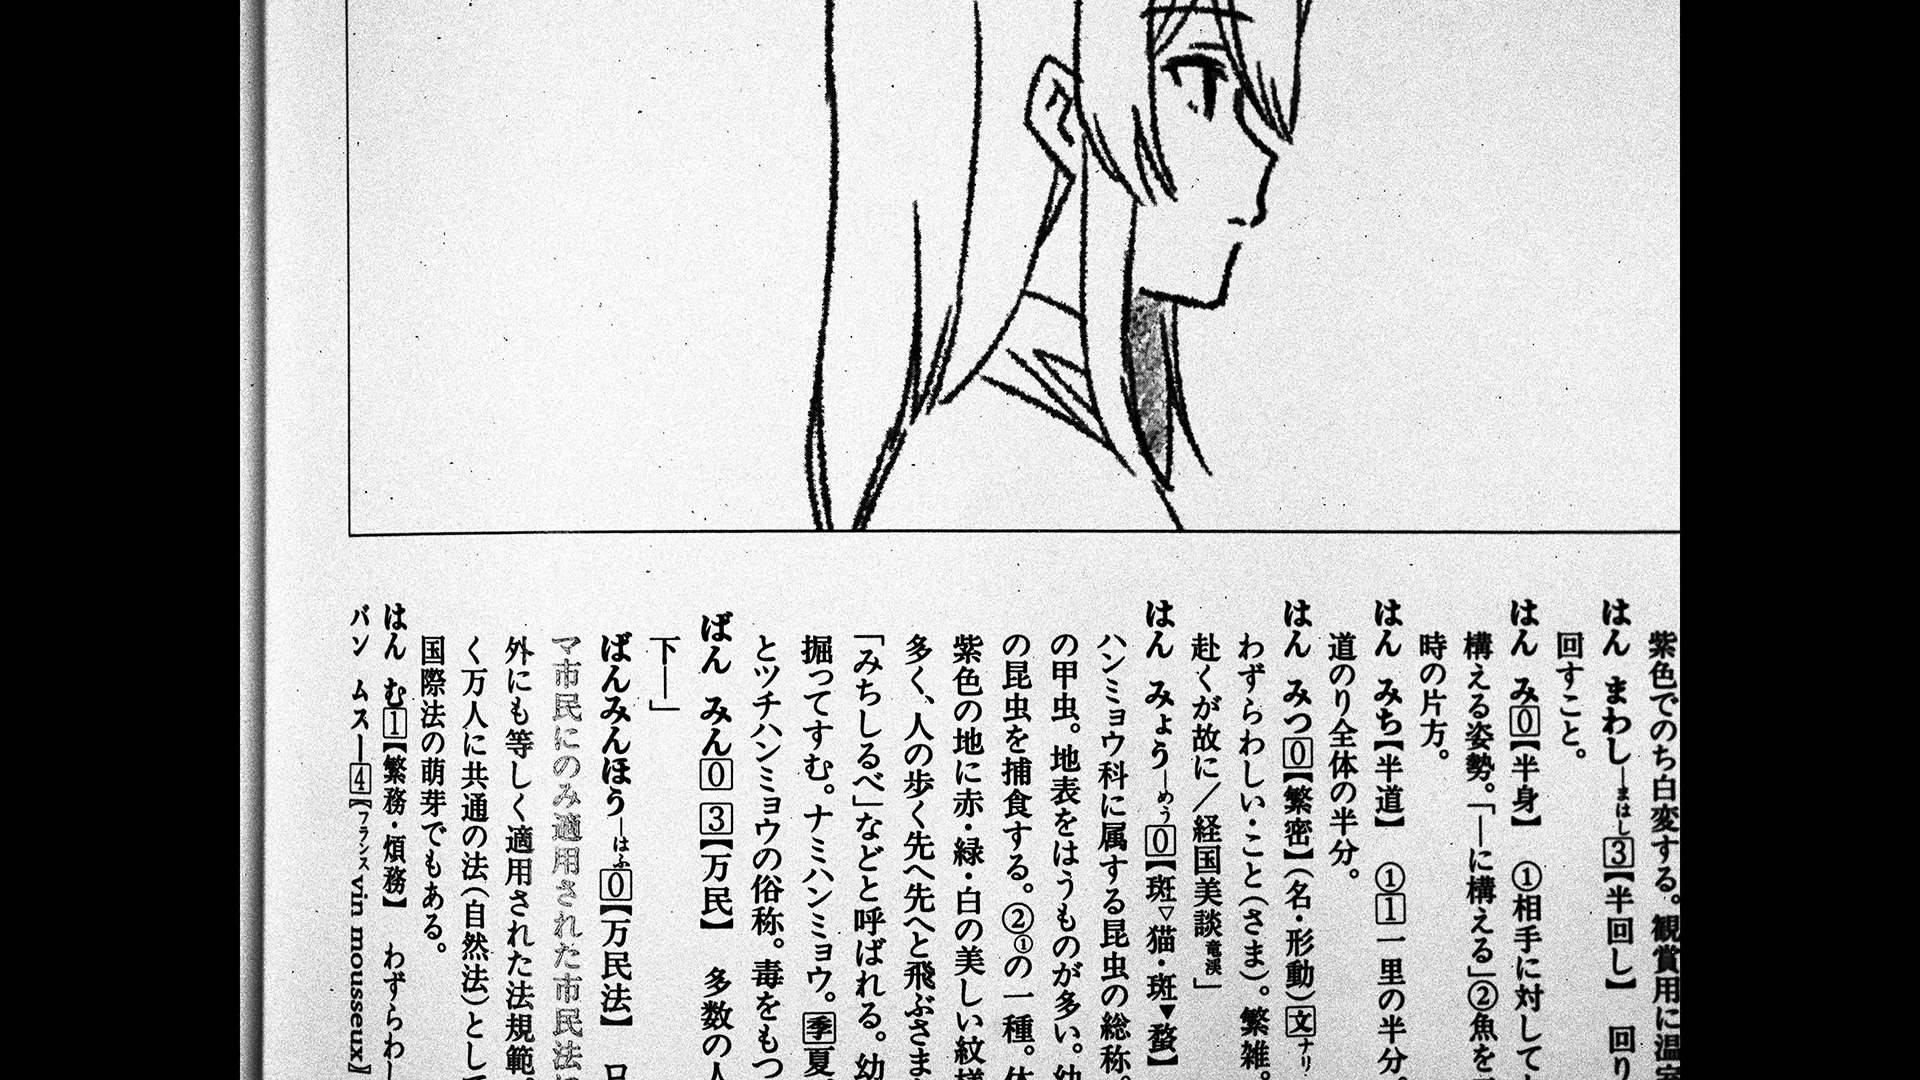 紫色でのち白変する。観賞用に温室
はん まわし―まはし3【半回し】 回り
回すこと。
はん み0【半身】 ①相手に対して
構える姿勢。「―に構える」②魚を
時の片方。
はん みち【半道】 ①1一里の半分。
道のり全体の半分。
はん みつ0【繁密】(名・形動)文ナリ
わずらわしい・こと(さま)。繁雑。
赴くが故に／経国美談竜渓」
はん みょう―めう0【斑▽猫・斑▼蝥】
ハンミョウ科に属する昆虫の総称。
の甲虫。地表をはうものが多い。幼
の昆虫を捕食する。②①の一種。体
紫色の地に赤・緑・白の美しい紋様
多く、人の歩く先へ先へと飛ぶさま
「みちしるべ」などと呼ばれる。幼
掘ってすむ。ナミハンミョウ。季夏
とツチハンミョウの俗称。毒をもつ
ばん みん0 3【万民】 多数の人
下―」
ばんみんほう―はふ0【万民法】
マ市民にのみ適用された市民法に
外にも等しく適用された法規範。
く万人に共通の法(自然法)として
国際法の萌芽でもある。
はん む1【繁務・煩務】 わずらわし
バン ムスー4【フランス vin mousseux】